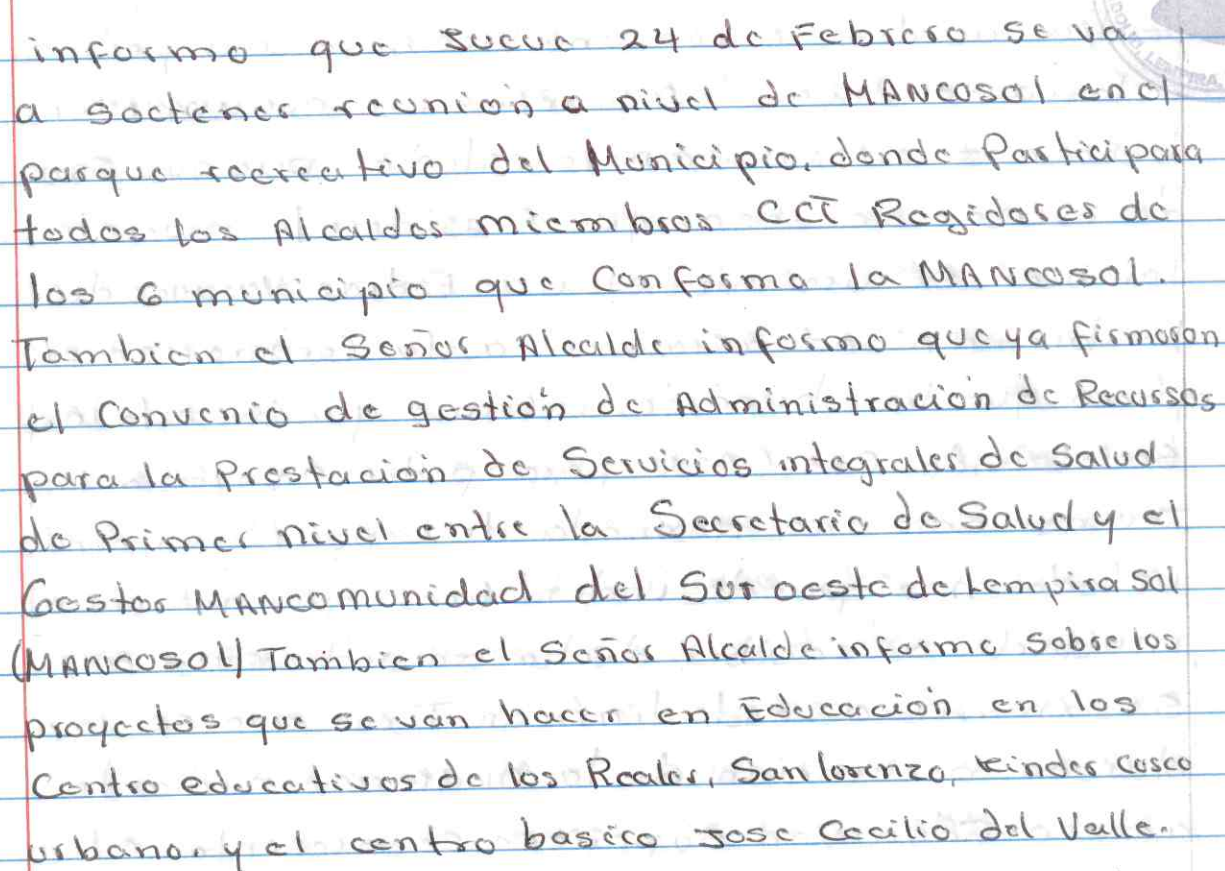 informo que jueve 24 de Febrero se va
a soctener reunion a nivel de MANCOSOL en el
parque recreativo del Municipio. donde Participara
todos los Alcaldes miembros CCT Regidores de
los 6 municipio que Conforma la MANCOSOL.
Tambien el Señor Alcalde informo que ya firmaron
el Convenio de gestión de Administración de Recursos
para la Prestación de Servicios integrales de Salud
de Primer nivel entre la Secretaria de Salud y el
Gestor MANCOMUNIDAD del Sur oeste de Lempira Sol
(MANCOSOL) Tambien el Señor Alcalde informo sobre los
proyectos que se van hacer en Educación en los
Centro educativos de los Reales, San lorenzo, kinder casco
urbano, y el centro basico Jose Cecilio del Valle.